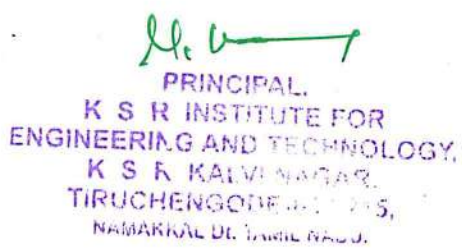 PRINCIPAL,
K S R INSTITUTE FOR
ENGINEERING AND TECHNOLOGY,
K S R KALVI NAGAR,
TIRUCHENGODE
NAMAKKAL Dt. TAMIL NADU.